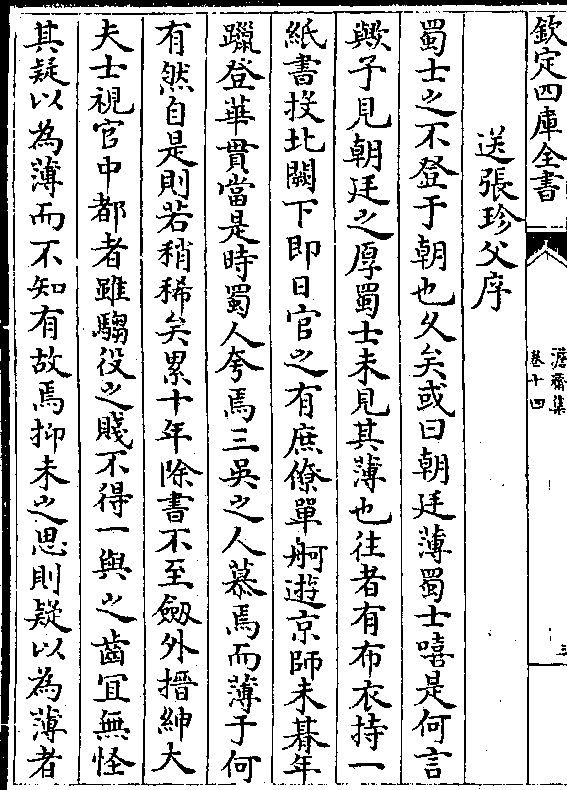 欽定四庫全書
澹齋集
卷十四
送張珍父序
蜀士之不登于朝也久矣或曰朝廷薄蜀士嘻是何言
歟予見朝廷之厚蜀士未見其薄也往者有布衣持一
紙書投北闕下即日官之有庶僚單舸遊京師未朞年
躐登華貫當是時蜀人夸焉三吳之人慕焉而薄于何
有然自是則若稍稀矣累十年除書不至劔外搢紳大
夫士視官中都者雖騶役之賤不得一與之齒冝無怪
其疑以為薄而不知有故焉抑未之思則疑以為薄者